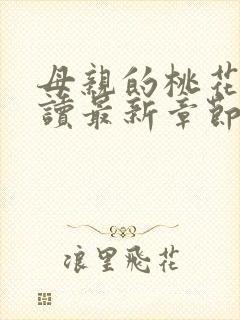 母親的桃花
讀最新章節
浪里飛花